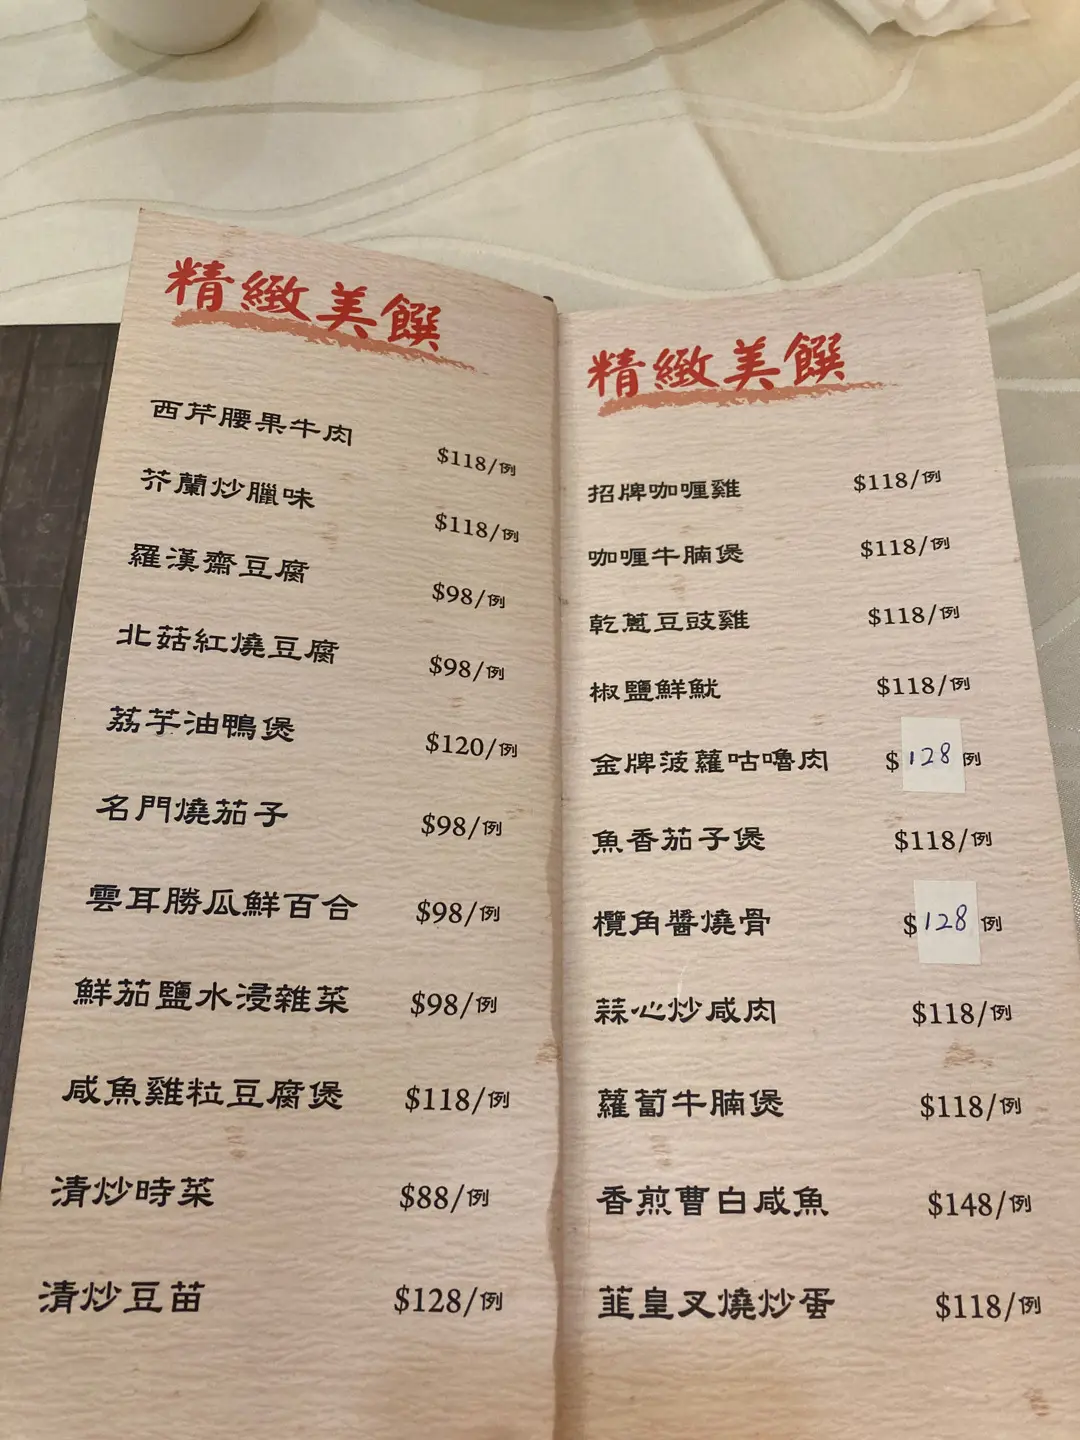 精緻美饌
西芹腰果牛肉 $118/例
芥蘭炒臘味 $118/例
羅漢齋豆腐 $98/例
北菇紅燒豆腐 $98/例
荔芋油鴨煲 $120/例
名門燒茄子 $98/例
雲耳勝瓜鮮百合 $98/例
鮮茄鹽水浸雜菜 $98/例
咸魚雞粒豆腐煲 $118/例
清炒時菜 $88/例
清炒豆苗 $128/例
精緻美饌
招牌咖喱雞 $118/例
咖喱牛腩煲 $118/例
乾蔥豆豉雞 $118/例
椒鹽鮮魷 $118/例
金牌菠蘿咕嚕肉 $128例
魚香茄子煲 $118/例
欖角醬燒骨 $128例
蒜心炒咸肉 $118/例
蘿蔔牛腩煲 $118/例
香煎曹白咸魚 $148/例
韮皇叉燒炒蛋 $118/例